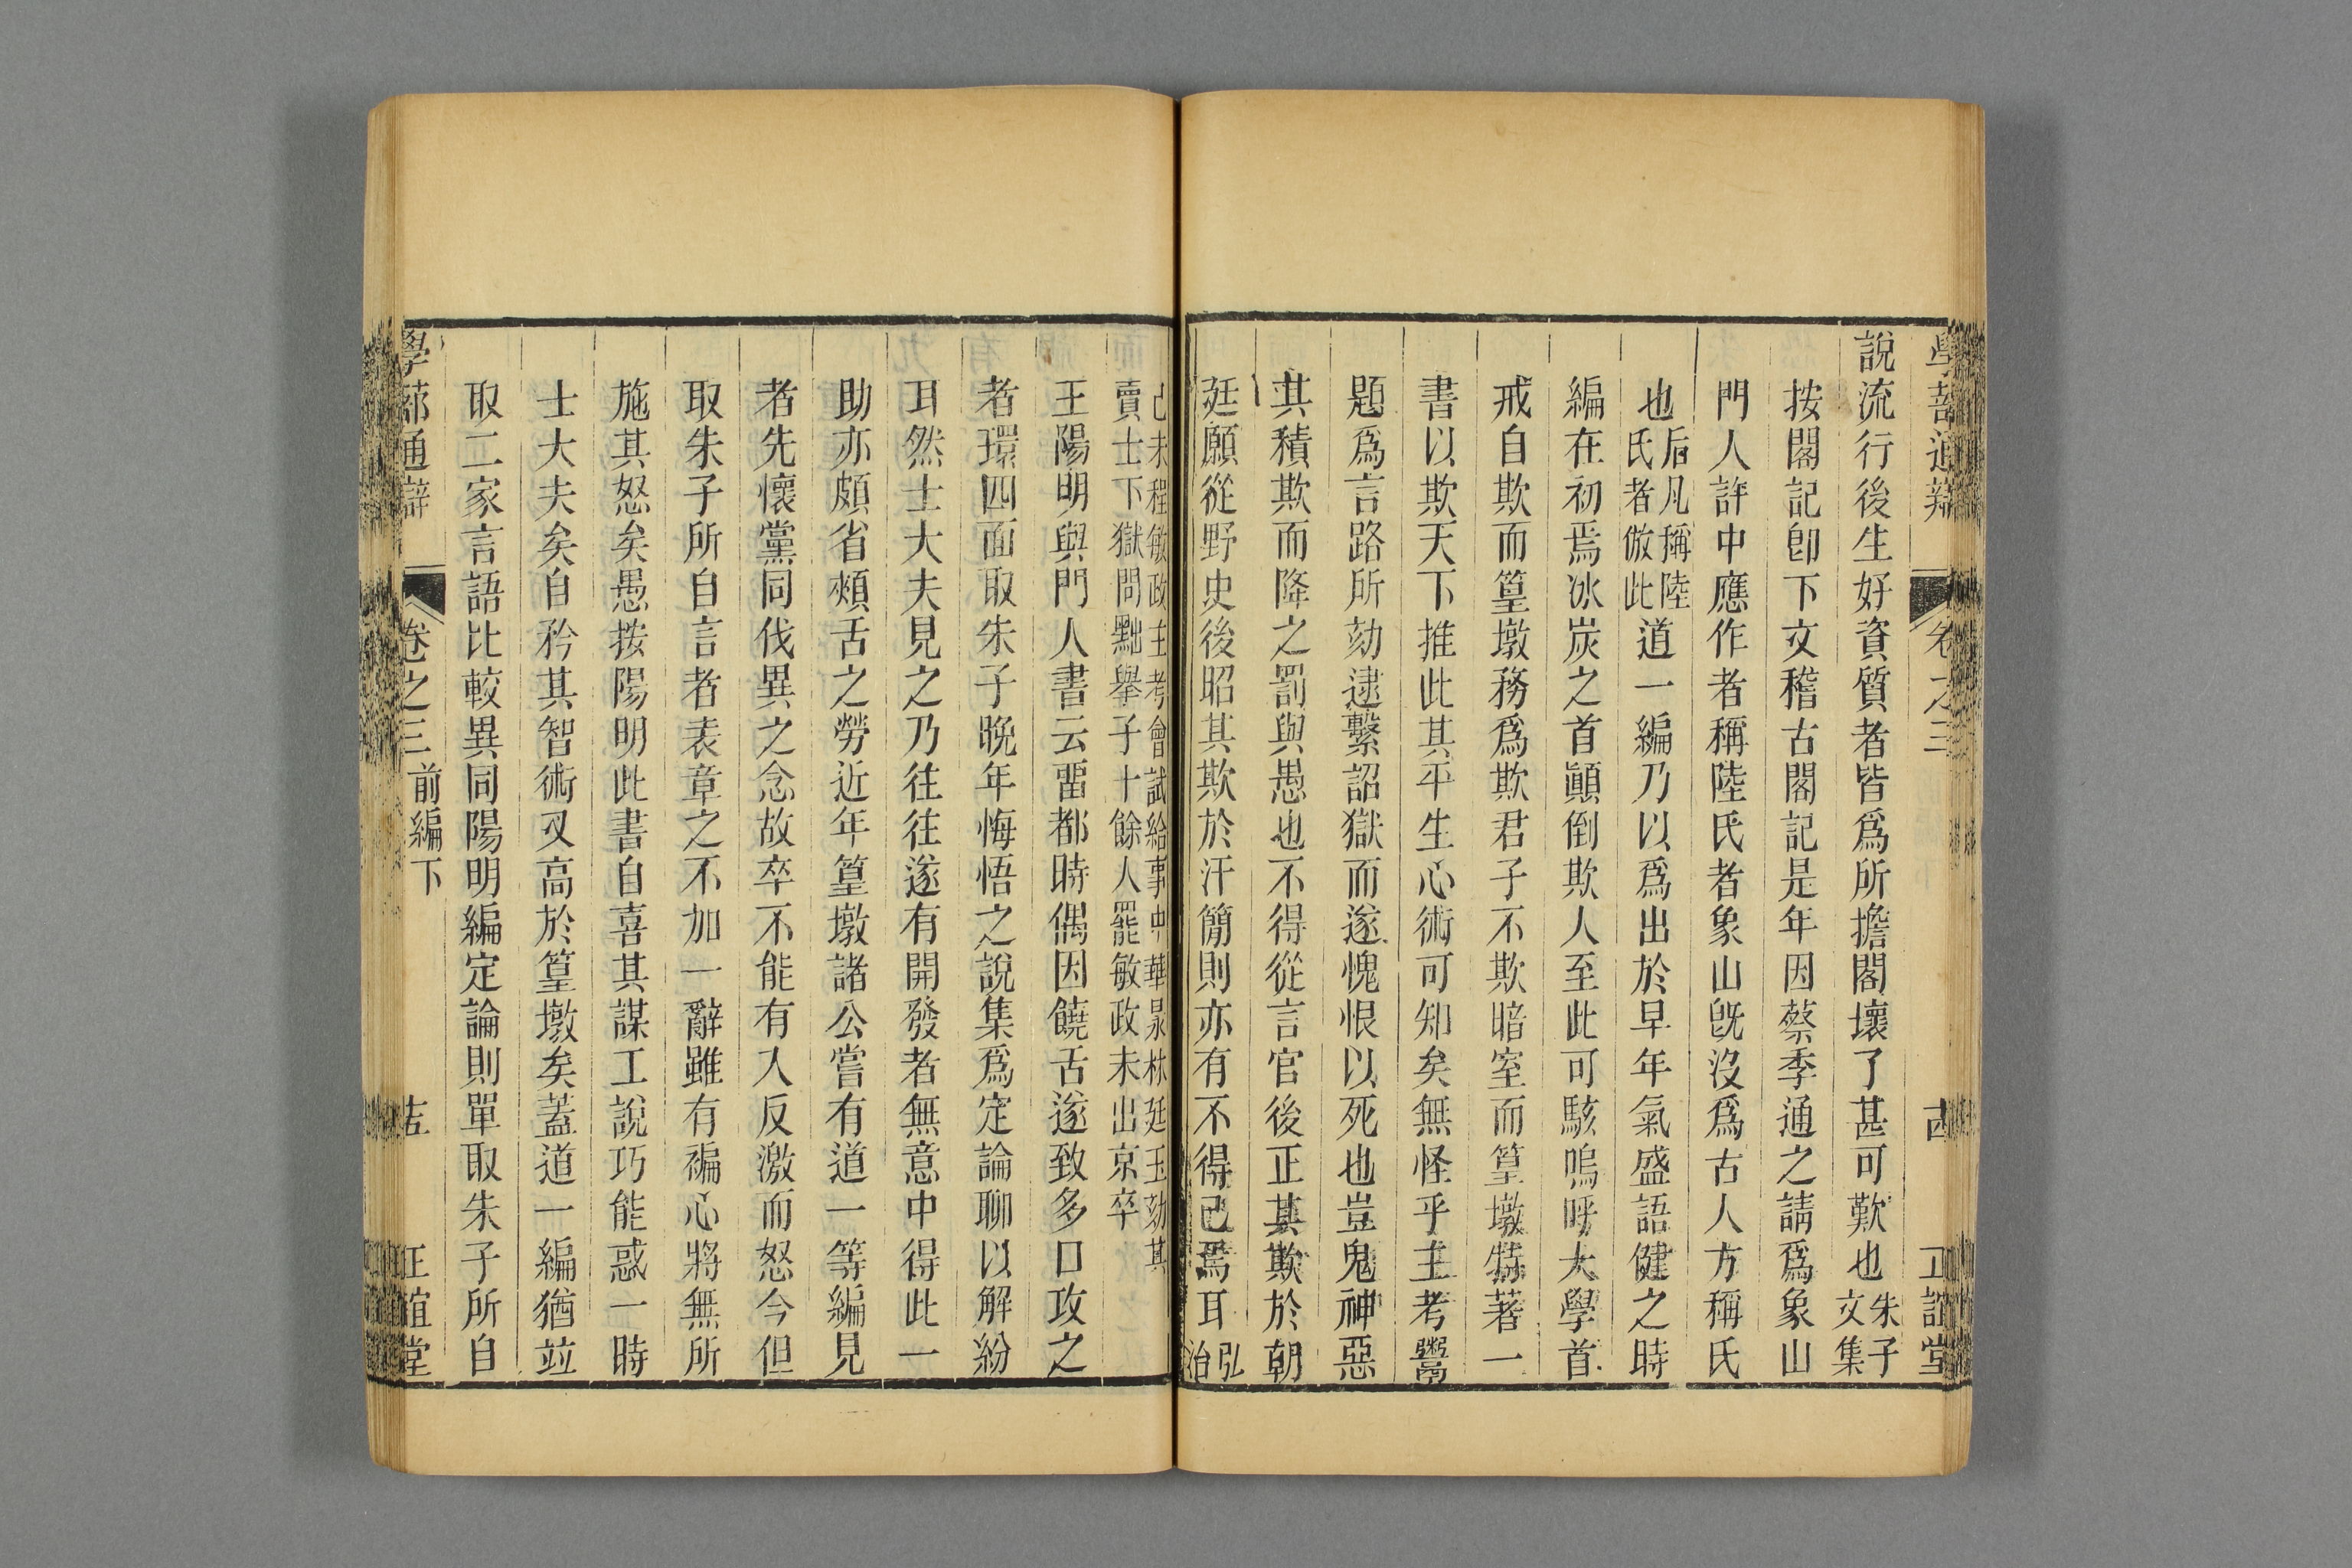 學蔀通辯 卷之三 十四 正誼堂
說流行後生好資質者皆爲所擔閣壞了甚可歎也朱子文集
按閣記卽下文稽古閣記是年因蔡季通之請爲象山
門人許中應作者稱陸氏者象山旣沒爲古人方稱氏
也后凡稱陸氏者倣此道一編乃以爲出於早年氣盛語健之時
編在初焉冰炭之首顚倒欺人至此可駭嗚呼大學首
戒自欺而篁墩務爲欺君子不欺暗室而篁墩特著一
書以欺天下推此其平生心術可知矣無怪乎主考鬻
題爲言路所劾逮繫詔獄而遂愧恨以死也豈鬼神惡
其積欺而降之罰與愚也不得從言官後正其欺於朝
廷願從野史後昭其欺於汗簡則亦有不得已焉耳弘治
己未程敏政主考會試給事中華泉林廷玉劾其
賣士下獄問黜舉子十餘人罷敏政未出京卒
王陽明與門人書云畱都時偶因饒舌遂致多口攻之
者環四面取朱子晚年悔悟之說集爲定論聊以解紛
耳然士大夫見之乃往往遂有開發者無意中得此一
助亦頗省頰舌之勞近年篁墩諸公嘗有道一等編見
者先懷黨同伐異之念故卒不能有入反激而怒今但
取朱子所自言者表章之不加一辭雖有褊心將無所
施其怒矣愚按陽明此書自喜其謀工說巧能惑一時
士大夫矣自矜其智術又高於篁墩矣蓋道一編猶竝
取二家言語比較異同陽明編定論則單取朱子所自
學蔀通辯 卷之三 前編下 十五 正誼堂